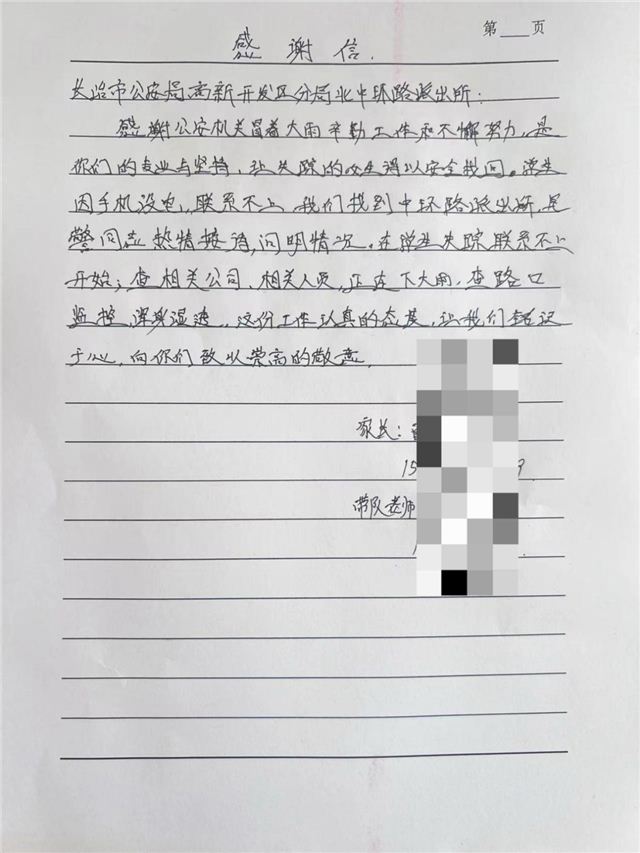 第___页
感谢信.
长治市公安局高新开发区分局北中环路派出所:
感谢公安机关冒着大雨辛勤工作和不懈努力,是
你们的专业与坚持,让失踪的女生得以安全找回。学生
因手机没电,联系不上,我们找到中环路派出所,民
警同志热情接待,问明情况。在学生失踪联系不上
开始,查相关公司、相关人员,正在下大雨,查路口
监控,浑身湿透,这份工作认真的态度,让我们铭记
于心,向你们致以崇高的敬意。
家长:
15
带队老师